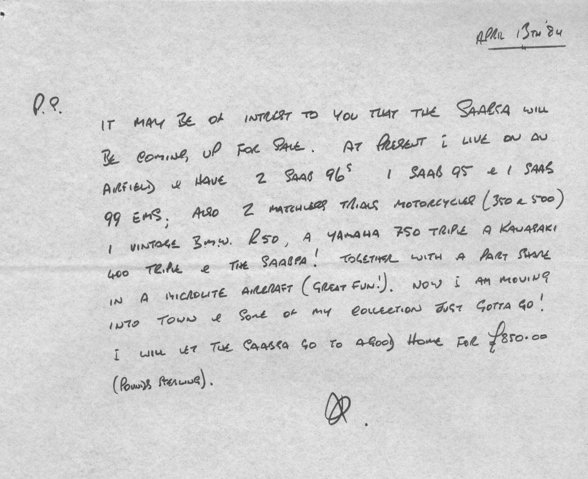 APRIL 13TH '84
P.S. IT MAY BE OF INTREST TO YOU THAT THE SAABSA WILL
BE COMING UP FOR SALE. AT PRESENT I LIVE ON AN
AIRFIELD & HAVE 2 SAAB 96s 1 SAAB 95 & 1 SAAB
99 EMS, ALSO 2 MATCHLESS TRIALS MOTORCYCLES (350 & 500)
1 VINTAGE B.M.W. R50, A YAMAHA 750 TRIPLE A KAWASAKI
400 TRIPLE & THE SAABSA! TOGETHER WITH A PART SHARE
IN A MICROLITE AIRCRAFT (GREAT FUN!). NOW I AM MOVING
INTO TOWN & SOME OF MY COLLECTION JUST GOTTA GO!
I WILL LET THE SAABSA GO TO A GOOD HOME FOR £850.00
(POUNDS STERLING).